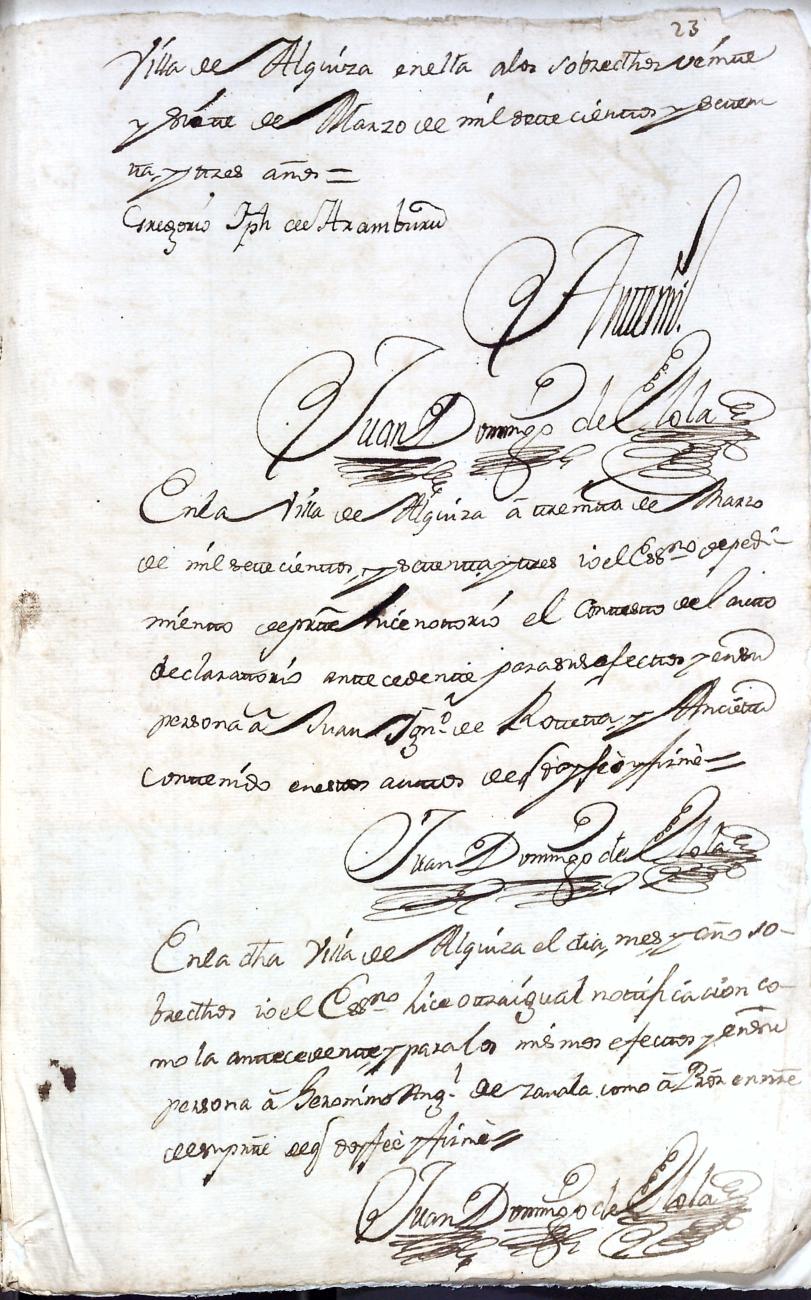 23
Villa de Alquiza en ella a los sobredthos veinte
y siete de Marzo de mil setecientos y seten
ta, y tres años =
Gregorio Jph de Aramburu
Antemi.
Juan Domingo de Elola
En la Villa de Alquiza â treinta de Marzo
de mil setecientos, y setenta y tres io el Essno de pedi-
miento de prte hice notorio el Contexto del auto
declaratorio antecedente para sus efectos y en su
persona â Juan Ignº de Roteta, y Ancieta
Contenido en estos autos de q doy feè y firmè =
Juan Domingo de Elola
En la dha Villa de Alquiza el dia, mes, y año so-
bredthos io el Essno hice otra igual notificacion co-
mo la antecedente, y para los mismos efectos y en su
persona â Geronimo Angl de zavala como â Pror en nre
de su prte de q doy feè y firmè =
Juan Domingo de Elola